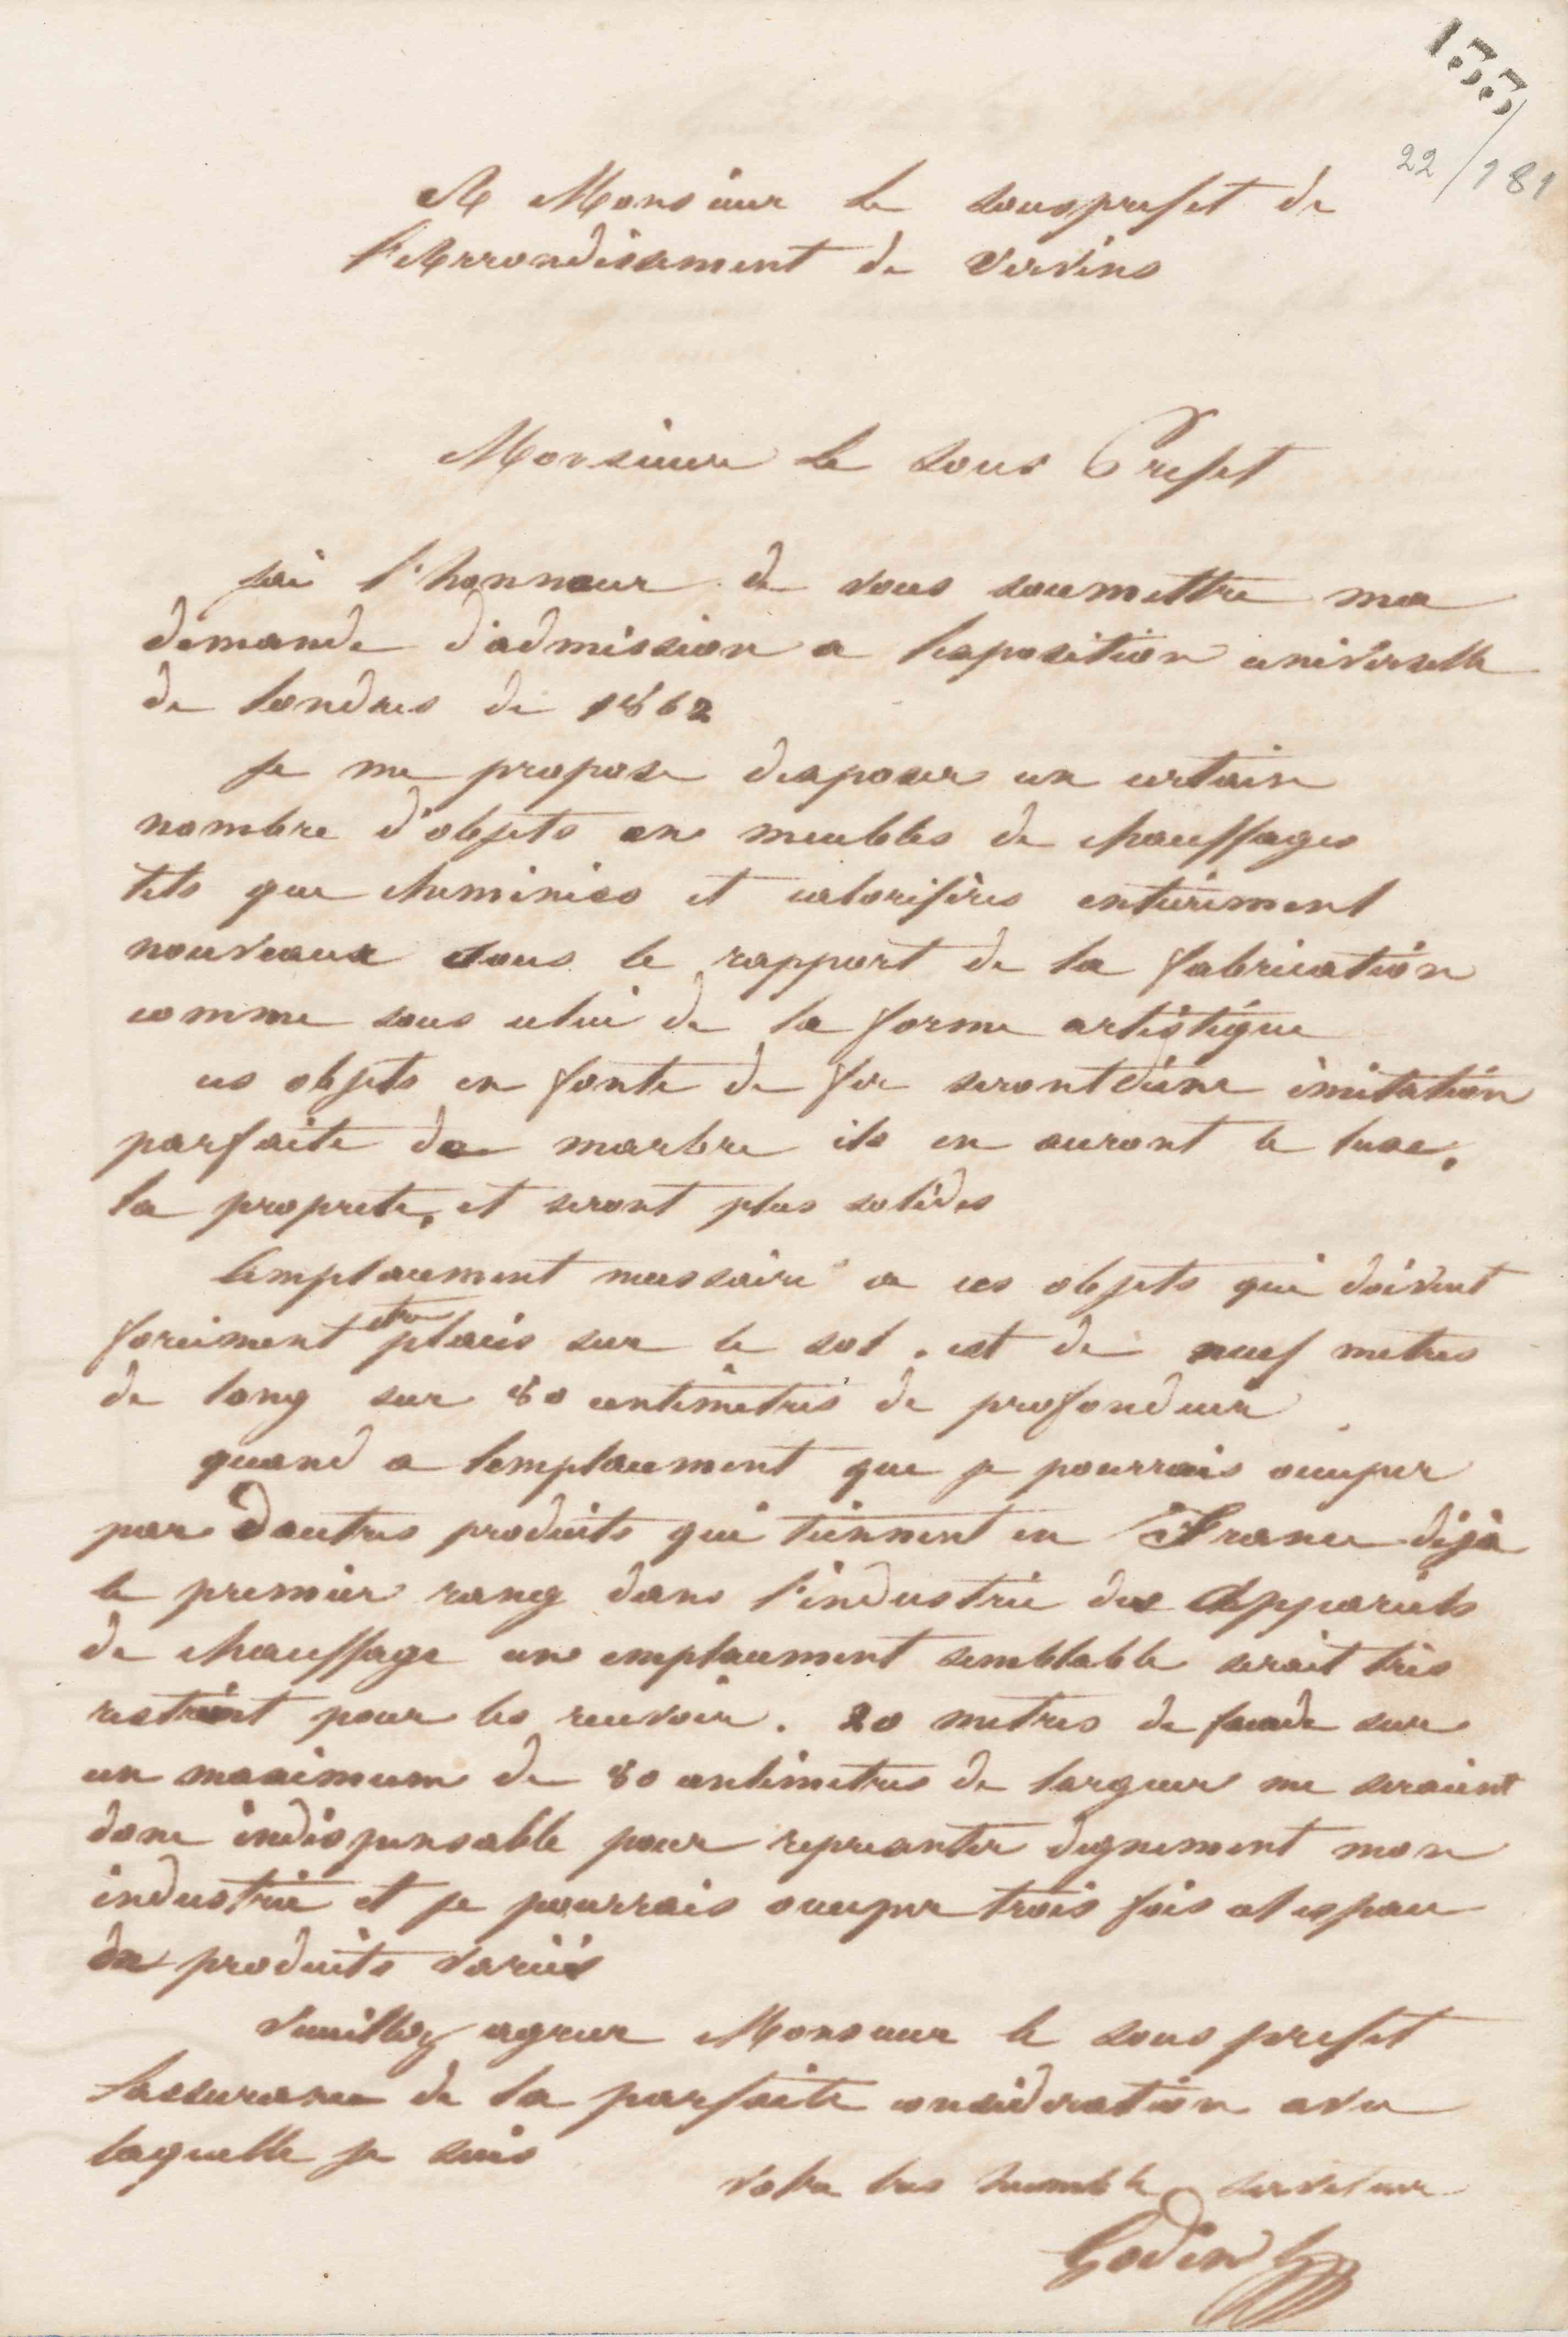 155
22/181
A Monsieur le sousprefet de
l'Arrondissement de Vervins
Monsieur le sous Prefet
J'ai l'honneur de vous soumettre ma
demande d'admission a lexposition universelle
de Londres de 1862
Je me propose dexposer un certain
nombre d'objets en meubles de chauffages
tels que cheminées et calorifères entièrement
nouveaux sous le rapport de la fabrication
comme sous celui de la forme artistique
ces objets en fonte de fer seront d'une imitation
parfaite de marbre ils en auront le luxe,
la proprete, et seront plus solides
Lemplacement necessaire a ces objets qui doivent
forcément etre placés sur le sol. est de neuf metres
de long sur 80 centimetres de profondeur
quand a lemplacement que je pourrais occuper
par dautres produits qui tiennent en France déjà
le premier rang dans l'industrie des Appareils
de chauffage un emplacement semblable serait très
restreint pour les recevoir. 20 metres de facade sur
un maximum de 80 centimetres de largeur me seraient
donc indispensable pour representer dignement mon
industrie et je pourrais occuper trois fois cet espace
de produits variés
Veuillez agreer Monsieur le sous prefet
lassurance de la parfaite consideration avec
laquelle je suis
Votre tres humble serviteur
Godin